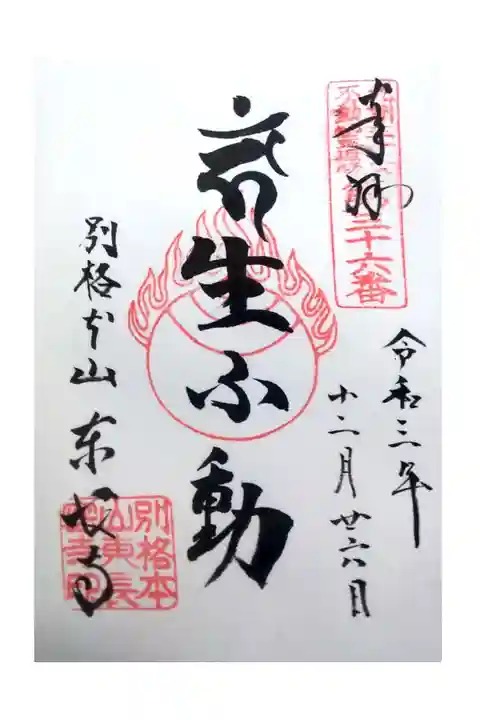 奉拝
九州三十六
不動霊場
第三十六番
令和三年
十二月廿六日
生不動
別格本山 東長寺
別格本
山東長
密寺印